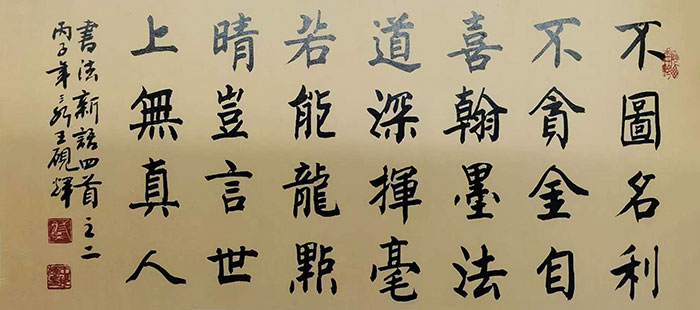 不圖名利
不貪金自
喜翰墨法
道深揮毫
若能龍點
晴豈言世
上無真人
書法新語四首之二
丙子年王硯輝